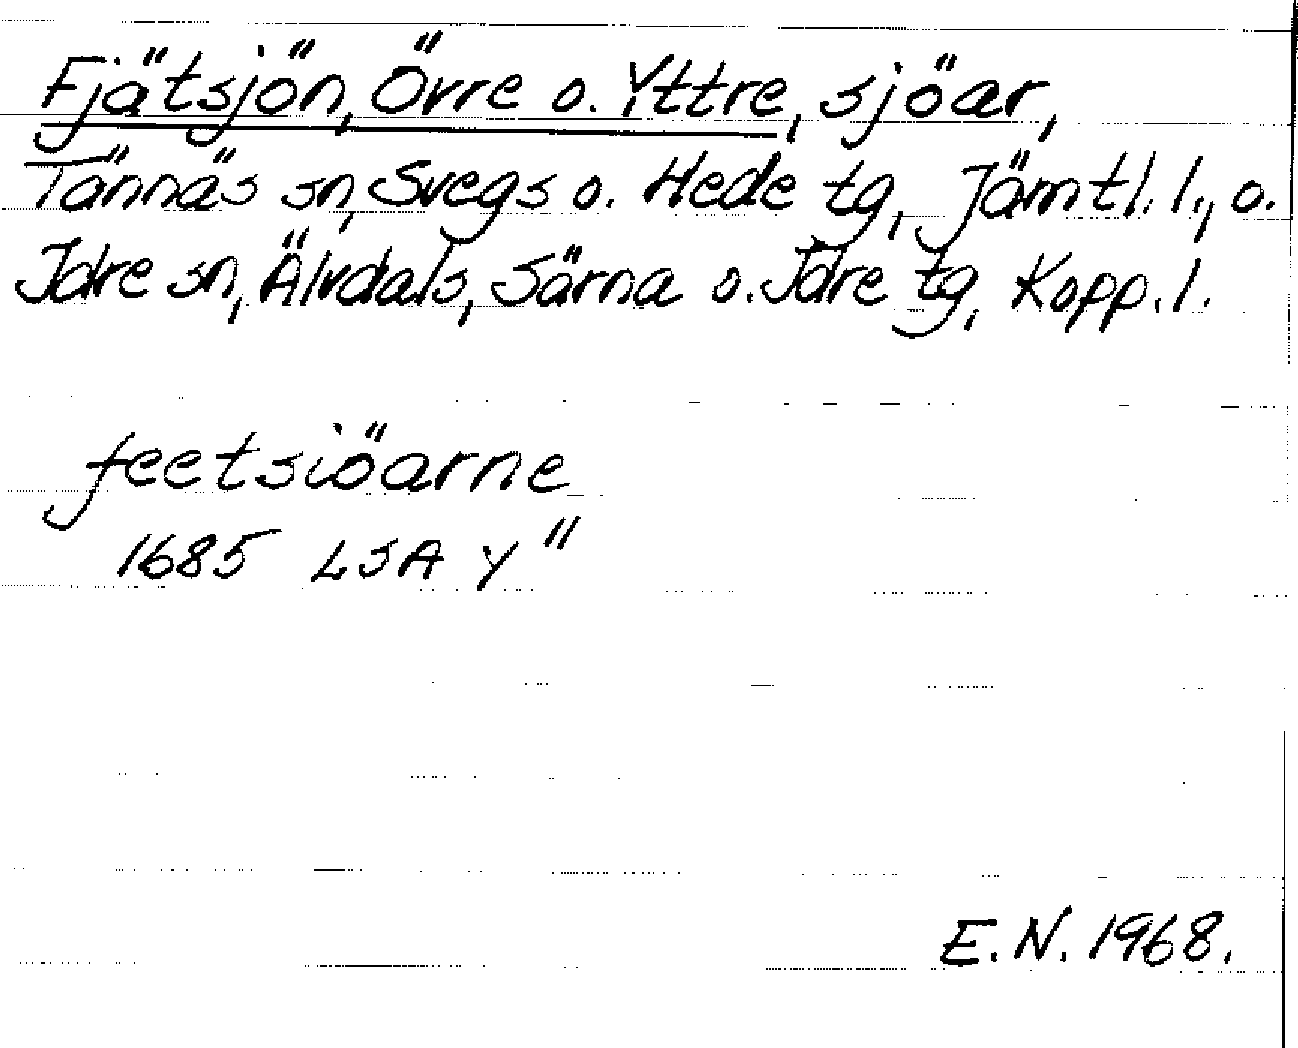 Fjätsjön, Övre o. Yttre, sjöar,
Tännäs sn, Svegs o. Hede tg, Jämtl. l., o.
Idre sn, Älvdals, Särna o. Idre tg, Kopp. l.
feetsiöarne
1685 LSA Y"
E.N. 1968.